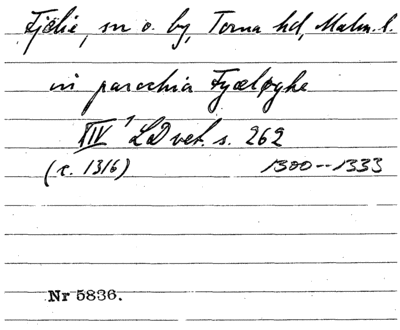 Fjelie, sn o. by, Torna hd, Malm. l.
in parochia Fyæløghe
XIV 1 LD vet. s. 262
(c. 1316) 1300--1333
Nr 5836.